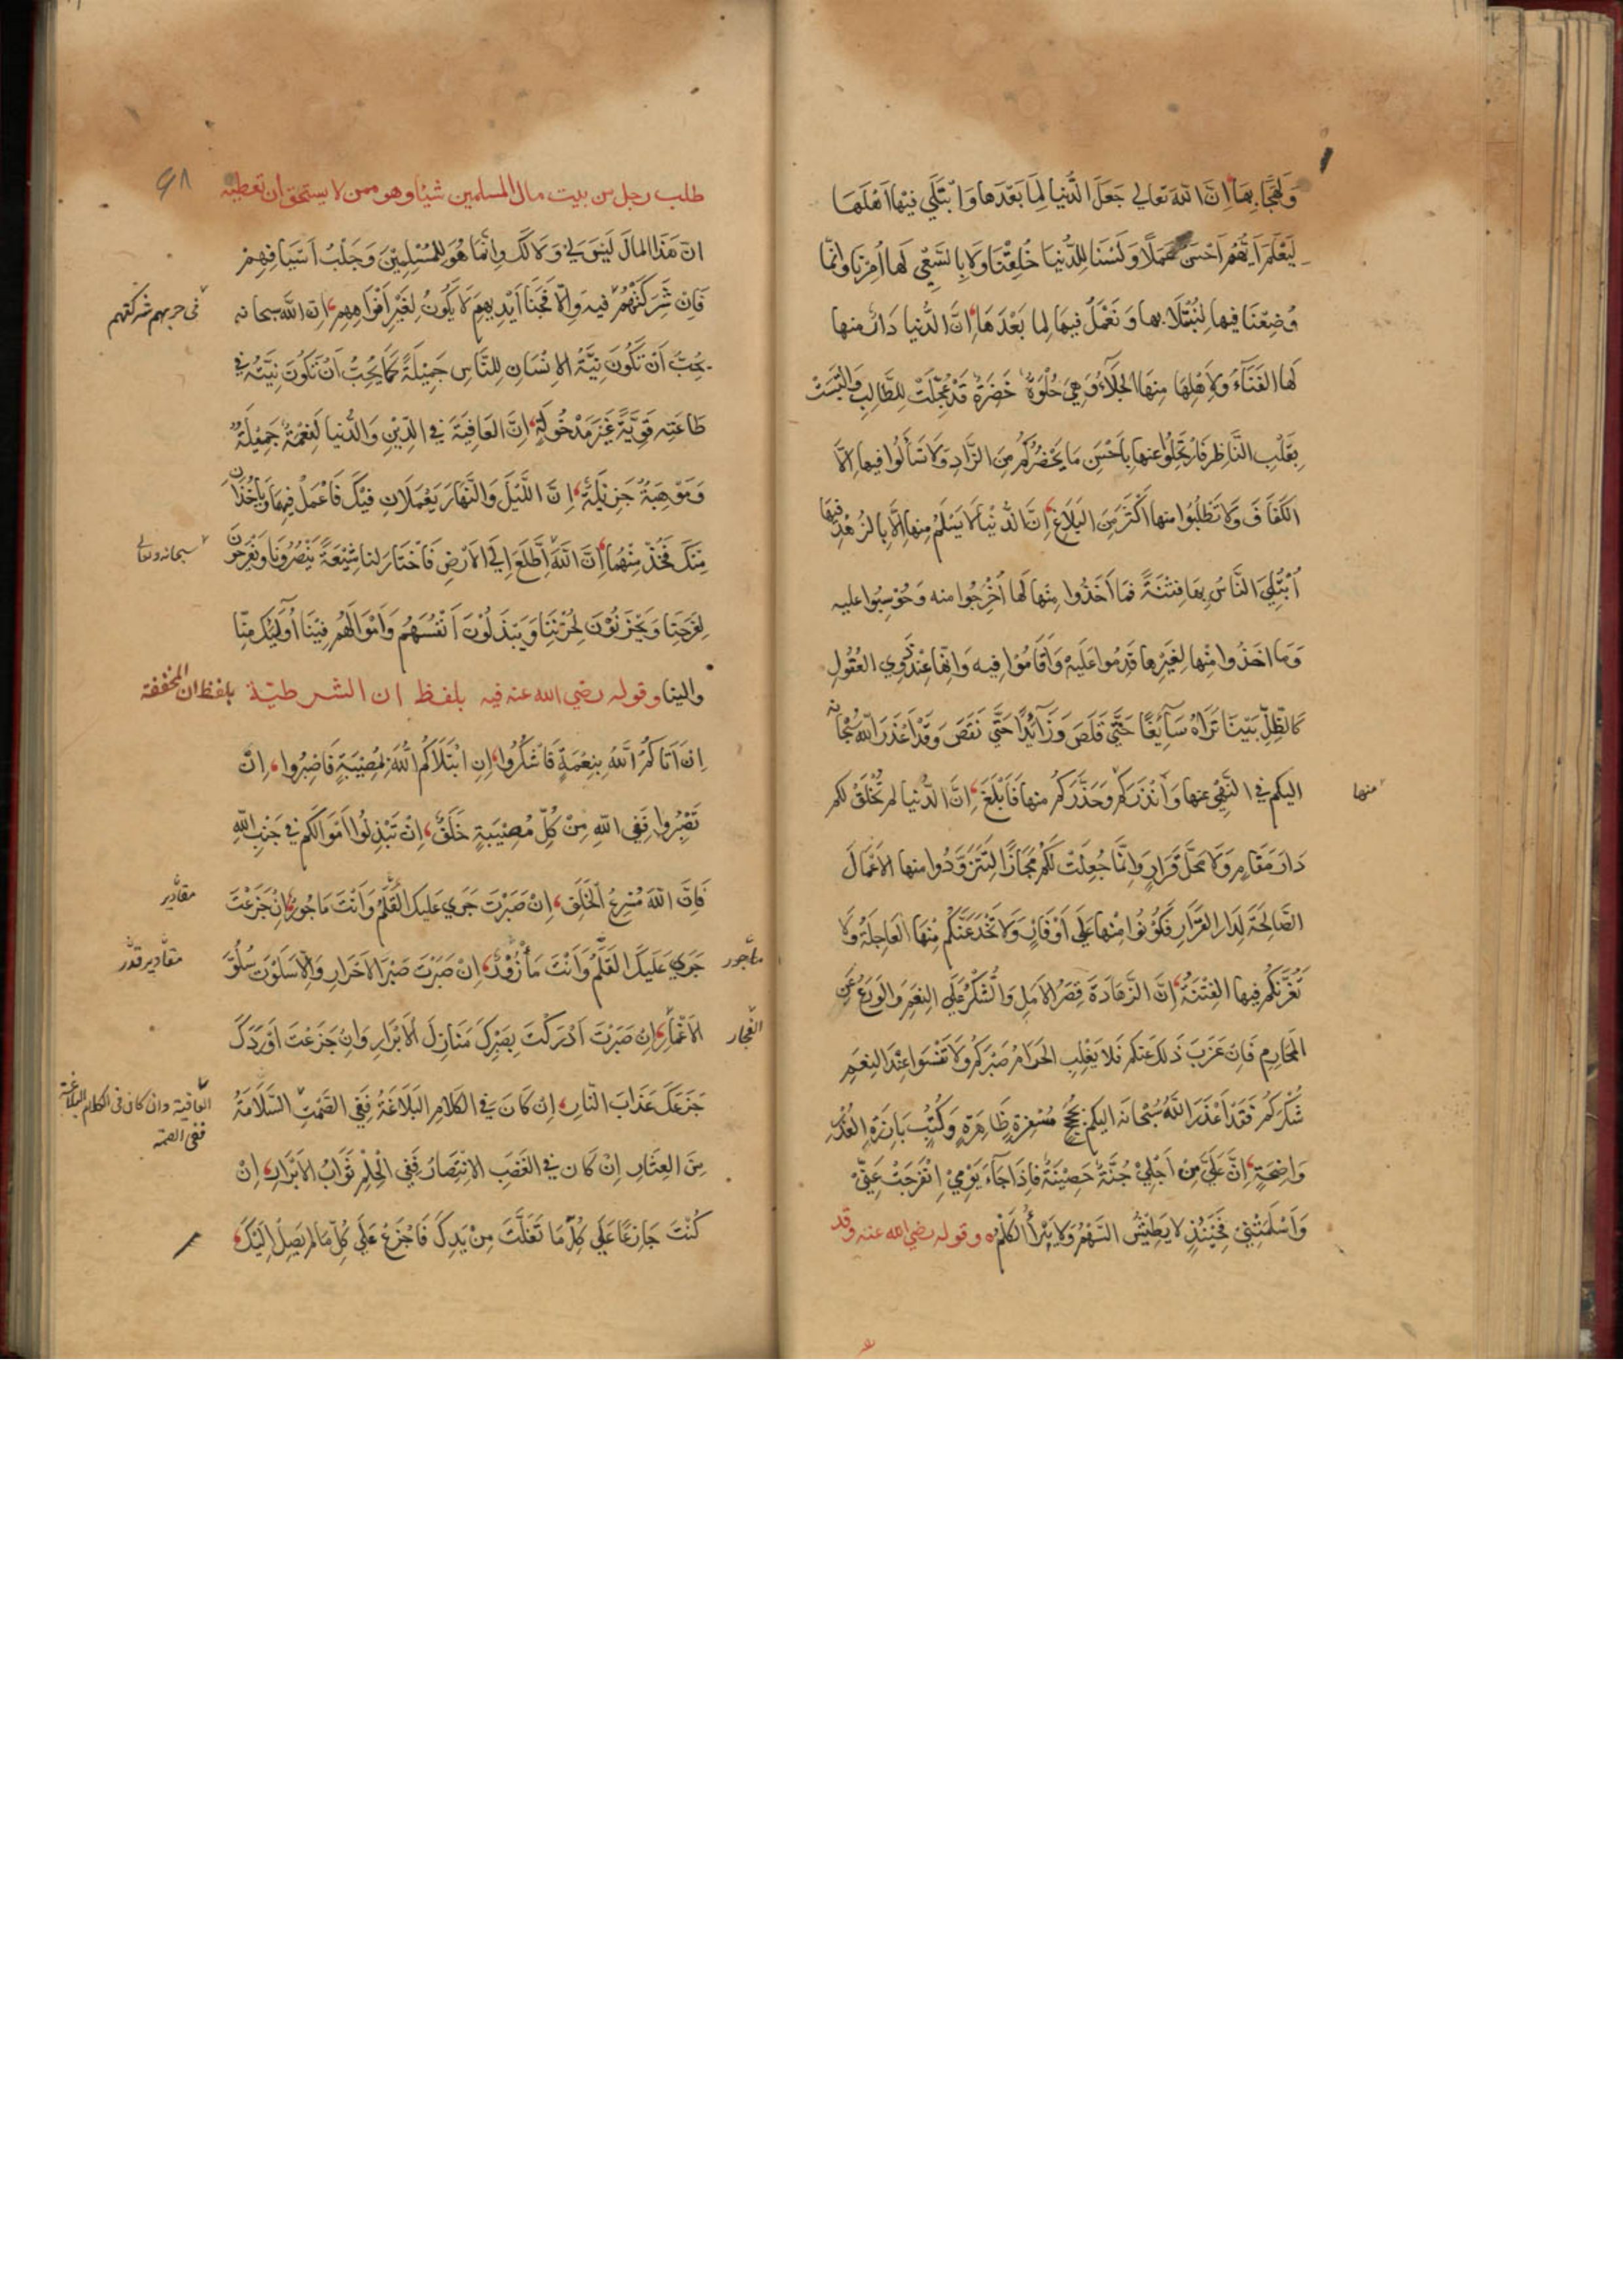 وَلَهَجًا بِهَا اِنَّ اللهَ تعالى جَعَلَ الدُّنيا لِمَا بَعْدَها وَابْتَلَى فيْهَا اَهْلَهَا
لِيَعْلَمَ اَيُّهُمْ اَحْسَنُ عَمَلًا وَلَسْنَا لِلدُّنْيَا خُلِقْنَا وَلَا بِالسَّعْيِ لَها اُمِرْنَا وَاِنَّمَا
وُضِعْنَا فيها لِنُبْتَلَا بها وَنَعْمَلَ فيهَا لِما بَعْدَهَا اِنَّ الدُّنيا دَارٌ منها
لَها الفَنَآءُ وَلِاَهْلِهَا مِنهَا الجَلَآءُ وَهِيَ حُلْوَةٌ خَضِرَةٌ قَدْ عُجِّلَتْ لِلطَّالِبِ وَالْتَبَسَتْ
بِقَلْبِ النَّاظِرِ فَارْتَحِلُوا عنها بِاَحْسَنِ مَا يَحْضُرُكُمْ مِنَ الزَّادِ وَلَا تَسْأَلُوا فيها اِلَّا
الكَفَافَ وَلَا تَطْلُبُوا منها اَكْثَرَ مِنَ البَلَاغِ اِنَّ الدُّنْيا لَا يَسْلَمُ منها اِلَّا بِالزُهْدِ فِيهَا
اُبْتُلِيَ النَّاسُ بِهَا فِتْنَةً فَمَا اَخَذُوا مِنْها لَها اُخْرِجُوا منه وَحُوْسِبُوا عليه
وَمَا اخَذُوا مِنْها لِغَيْرِها قَدِمُوا عَلَيْهِ وَاَقَامُوْا فيه وَاِنَّها عِنْدَ ذَوِي العُقُولِ
كَالظِلِّ بَيْنَا تَرَاهُ سَآئِغًا حَتَّى قَلَصَ وَزَآئِدًا حَتَّى نَقَصَ وَقَدْ اَعْذَرَ اللهُ سُبْحَانَه
اليكم في النَّهْي عنها وَاَنْذَرَكُمْ وَحَذَّرَكُمْ منها فَاَبْلَغَ اِنَّ الدُّنيا لم تُخْلَقْ لكم
منها
دَارَ مَقَامٍ وَلَا مَحَلَّ قَرَارٍ وَاِنَّمَا جُعِلَتْ لَكُمْ مَجَازًا لِتَتَزَوَّدُوا منها الاَعْمَالَ
الصَّالِحَةَ لِدَارِ القَرَارِ فَكُوْنُوا مِنْها عَلَى اَوْفَازٍ وَلَا تَخْدَعَنَّكُمْ مِنْهَا العَاجِلَةُ وَلَا
تَغُرَّنَّكُمْ فيها الفِتْنَةُ اِنَّ الزَّهَادَةَ قِصَرُ الاَمَلِ وَالشُّكْرُ عَلَى النِعَمِ وَالوَرَعُ عَنِ
المَحَارِمِ فَاِنْ عَزَبَ ذَلِكَ عنكم فَلَا يَغْلِبِ الحَرَامُ صَبْرَكُمْ وَلَا تَنْسَوا عِنْدَ النِعَمِ
شُكْرَكُمْ فَقَدْ اَعْذَرَ اللَّهُ سُبْحَانَه اليكم بِحُجَجٍ مُسْفِرَةٍ ظَاهِرَةٍ وَكُتُبٍ بَارِزَةِ العُذْرِ
وَاضِحَةٍ اِنَّ عَلَيَّ مِنْ اَجَلِيْ جُنَّةً حَصِيْنَةً فَاِذَا جَاءَ يَوْمِيْ اِنْفَرَجَتْ عَنِّيْ
وَاَسْلَمَتْنِيْ فَحِيْنَئِذٍ لا يَطِيْشُ السَّهْمُ وَلَا يَبْرَأُ الكَلْمُ وقوله رضي الله عنه وقد
٩٨
طلب رجل من بيت مال المسلمين شيئا وهو ممن لا يستحق ان تعطيه
انّ هَذَا المالَ لَيْسَ لِيْ وَلَا لَكَ وَاِنَّمَا هُوَ لِلْمُسْلِمِيْنَ وَجَلَبُ اَسْيَافِهِمْ
فَاِنْ شَرِكْتَهُمْ فيه وَاِلَّا فَجَنَا اَيْدِيهِمْ لَا يَكُونُ لِغَيْرِ اَفْوَاهِهِمْ اِنَّ اللَّهَ سبحانه
فى حربهم شركتهم
يُحِبُّ اَنْ تَكُونَ نِيَّةُ الاِنْسَانِ لِلنَّاسِ جَمِيْلَةً كَمَا يُحِبُّ اَنْ تَكُوْنَ نِيَّتُهُ فِي
طَاعَتِهِ قَوِيَّةً غَيْرَ مَدْخُولَةٍ اِنَّ العَافِيَةَ فِي الدِّيْنِ وَالدُّنيا لَنِعْمَةٌ جَمِيْلَةٌ
وَمَوْهِبَةٌ جَزِيْلَةٌ اِنَّ اللَّيْلَ وَالنَّهَارَ يَعْمَلَانِ فِيْكَ فَاعْمَلْ فِيهِمَا وَيَأْخُذَانِ
مِنْكَ فَخُذْ مِنْهُمَا اِنَّ اللَّهَ اِطَّلَعَ اِلَى الاَرْضِ فَاخْتَارَ لنا شِيْعَةً يَنْصُرُونَا وَيَفْرَحُوْنَ
سبحانه وتعالى
لِفَرَحِنَا وَيَحْزَنُوْنَ لِحُزْنِنَا وَيَبْذُلُوْنَ اَنْفُسَهُمْ وَاَمْوَالَهُمْ فِيْنَا اُولٰئِكَ مِنَّا
والينا وقوله رضي الله عنه فيه بلفظ ان الشرطيّة بلفظ ان المخففة
اِنْ اَتَاكُمُ اللَّهُ بِنِعْمَةٍ فَاشْكُرُوا اِنِ ابْتَلَاكُمُ اللهُ بِمُصِيْبَةٍ فَاصْبِرُوا اِنْ
تَصْبِرُوا فَفِي اللهِ مِنْ كُلِّ مُصِيْبَةٍ خَلَفٌ اِنْ تَبْذِلُوا اَمْوَالَكُم في جَنْبِ اللهِ
فَاِنَّ اللهَ مُسْرِعُ الخَلَفِ اِنْ صَبَرْتَ جَرَى عَليكَ القَلَمُ وَاَنْتَ مَاجُورٌ اِنْ جَزَعْتَ
مقادير
جَرَى عَلَيكَ القَلَمُ وَاَنْتَ مَأْزُوْرٌ اِنْ صَبَرْتَ صَبْرَ الاَحْرَارِ وَاِلَّا سَلَوْتَ سُلُوَّ
مأجور
مقادير قدر
الاَغْمَارِ اِنْ صَبَرْتَ اَدْرَكْتَ بِصَبْرِكَ مَنَازِلَ الاَبْرَارِ وَاِنْ جَزَعْتَ اَوْرَدَكَ
الفجار
جَزَعُكَ عَذَابَ النَّارِ اِنْ كَانَ فِي الكَلَامِ البَلَاغَةُ فَفِي الصَّمْتِ السَّلَامَةُ
العافية وان كان فى الكلام البلاغة
ففى الصمت
مِنَ العِثَارِ اِنْ كَانَ فِي الغَضَبِ الاِنْتِصَارُ فَفِي الْحِلْمِ ثَوَابُ الاَبْرَارِ اِنْ
كُنْتَ جَازِعًا عَلَى كُلِّ مَا تَفَلَّتَ مِنْ يَدِكَ فَاجْزَعْ عَلَى كُلِّ مَا لَمْ يَصِلْ اِلَيْكَ